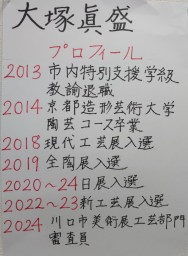 大塚眞盛
プロフィール
2013 市内特別支援学級
教諭退職
2014 京都造形芸術大学
陶芸コース卒業
2018 現代工芸展入選
2019 全陶展入選
2020～24 日展入選
2022～23 新工芸展入選
2024 川口市美術展工芸部門
審査員